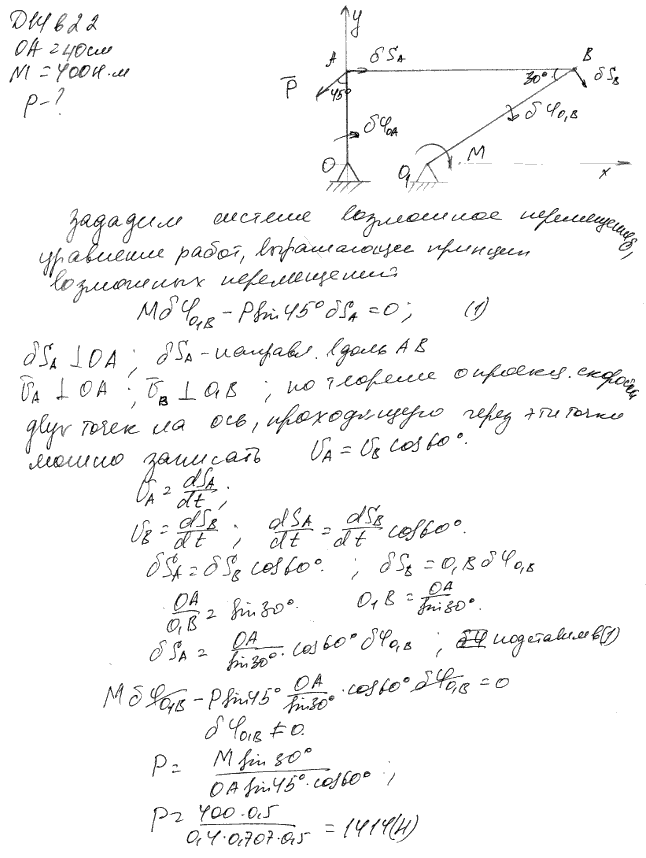 Д14 в 22
OA = 40 см
M = 400 Н·м
P - ?
y
A
δS_A
B
30°
δS_B
P̅
45°
δφ_O₁B
δφ_OA
O
O₁
M
x
Зададим системе возможное перемещение,
уравнение работ, выражающее принцип
возможных перемещений
Mδφ_O₁B - P sin45° δS_A = 0; (1)
δS_A ⊥ OA ; δS_A - направл. вдоль AB
v̅_A ⊥ OA ; v̅_B ⊥ O₁B ; по теореме о проекц. скоростей
двух точек на ось, проходящую через эти точки
можно записать v_A = v_B cos60°.
v_A = dS_A/dt ;
v_B = dS_B/dt ; dS_A/dt = dS_B/dt cos60°.
δS_A = δS_B cos60° ; δS_B = O₁B δφ_O₁B
OA/O₁B = sin30°. O₁B = OA/sin30°.
δS_A = OA/sin30° · cos60° δφ_O₁B ; подставим в (1)
Mδφ_O₁B - P sin45° OA/sin30° · cos60° δφ_O₁B = 0
δφ_O₁B ≠ 0.
P = M sin30°/OA sin45° · cos60° ;
P = 400·0.5/0,4·0,707·0.5 = 1414 (Н)